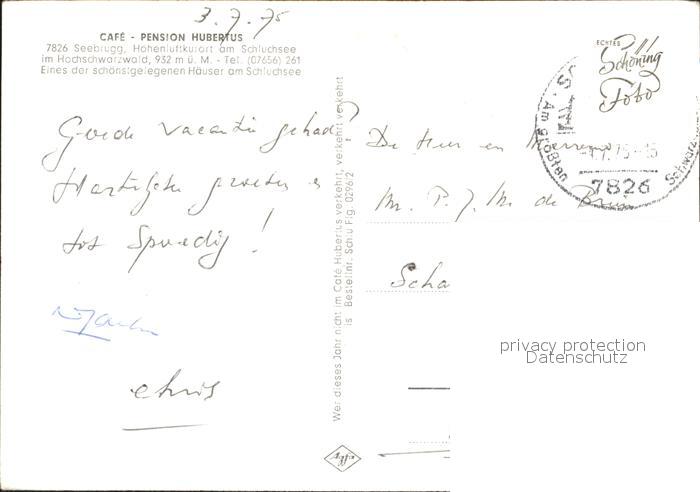 3.7.75
CAFÉ - PENSION HUBERTUS
7826 Seebrugg, Höhenluftkurort am Schluchsee
im Hochschwarzwald, 932 m ü. M. - Tel. (07656) 261
Eines der schönstgelegenen Häuser am Schluchsee
Goede vacantie gehad?
Hartelijke groeten en
tot Spoedig!
chris
Wer dieses Jahr nicht im Café Hubertus verkehrt, verkehrt verkehrt
Bestellnr. Schlu Fig. 0296.2
Agfa
ECHTES
Schöning
Foto
Am größten
.7.75-15
7826
Schwarz
De Heer en Mevrouw
Mr. P. J. M. de Bruin
Scha
privacy protection
Datenschutz